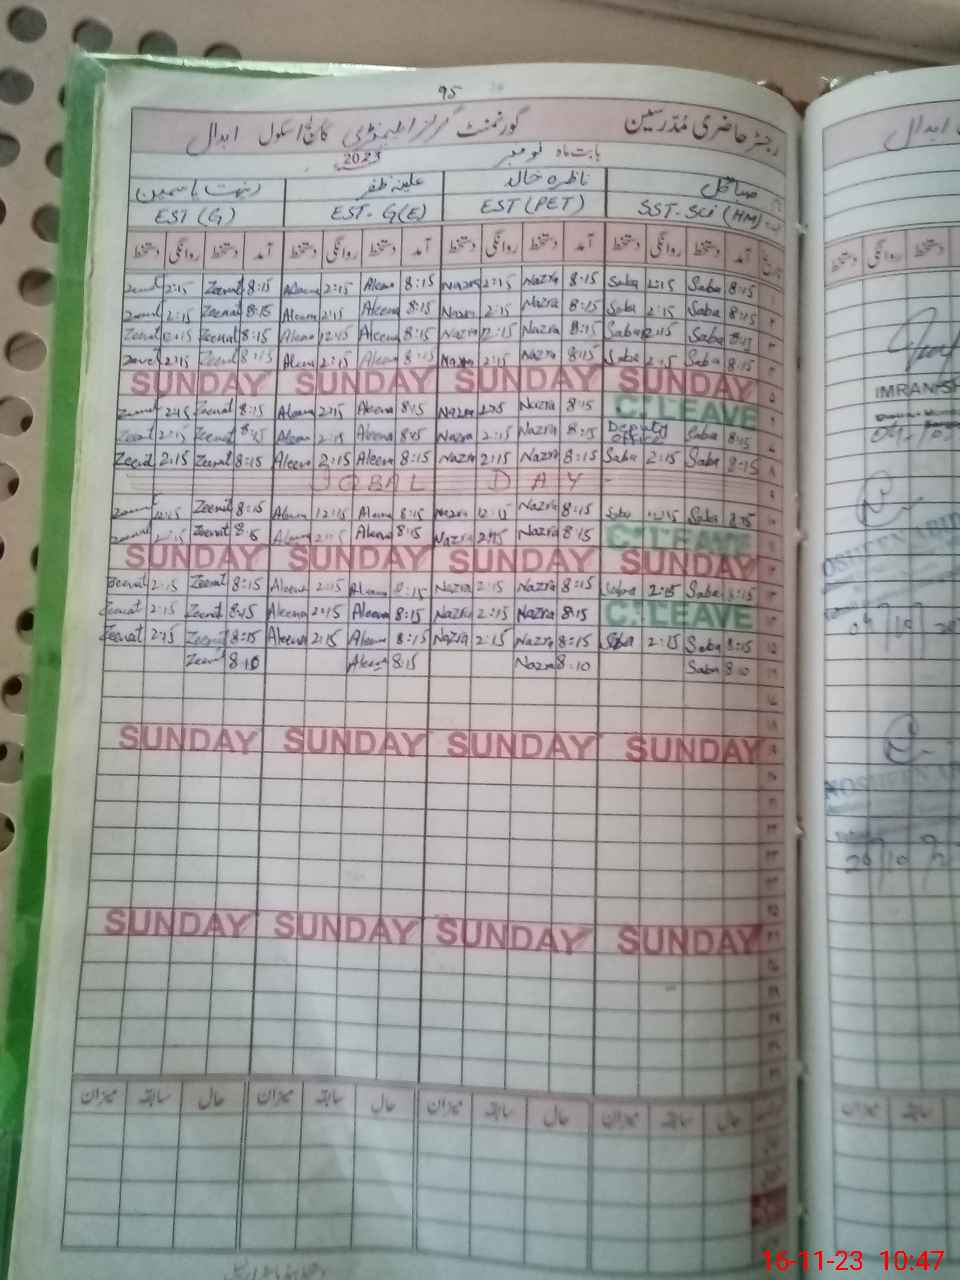 95
رجسٹر حاضری مُدرسین گورنمنٹ گرلز ایلیمنٹری کالج اسکول ابدال
بابت ماہ نومبر 2023
صبا گل ناظرہ خالد علینہ ظفر زینت یاسمین
EST (G) EST-G(E) EST (PET) SST-Sci (HM)
تاریخ آمد دستخط روانگی دستخط آمد دستخط روانگی دستخط آمد دستخط روانگی دستخط آمد دستخط روانگی دستخط
2:15 Zeenat 8:15 Aleena 2:15 Aleena 8:15 Nazra 2:15 Nazra 8:15 Saba 2:15 Saba 8:15
2:15 Zeenat 8:15 Aleena 2:15 Aleena 8:15 Nazra 2:15 Nazra 8:15 Saba 2:15 Saba 8:15
Zeenat 12:15 Zeenat 8:15 Aleena 12:15 Aleena 8:15 Nazra 12:15 Nazra 8:15 Saba 12:15 Saba 8:15
2:15 Zeenat 8:15 Aleena 2:15 Aleena 8:15 Nazra 2:15 Nazra 8:15 Saba 2:15 Saba 8:15
SUNDAY SUNDAY SUNDAY SUNDAY
Zeenat 2:15 Zeenat 8:15 Aleena 2:15 Aleena 8:15 Nazra 2:15 Nazra 8:15 C.LEAVE
Zeenat 2:15 Zeenat 8:15 Aleena 2:15 Aleena 8:15 Nazra 2:15 Nazra 8:15 Deputy Office Saba 8:15
Zeenat 2:15 Zeenat 8:15 Aleena 2:15 Aleena 8:15 Nazra 2:15 Nazra 8:15 Saba 2:15 Saba 8:15
IQBAL DAY
12:15 Zeenat 8:15 Aleena 12:15 Aleena 8:15 Nazra 12:15 Nazra 8:15 Saba 12:15 Saba 8:15
2:15 Zeenat 8:15 Aleena 2:15 Aleena 8:15 Nazra 2:15 Nazra 8:15 C.LEAVE
SUNDAY SUNDAY SUNDAY SUNDAY
Zeenat 2:15 Zeenat 8:15 Aleena 2:15 Aleena 8:15 Nazra 2:15 Nazra 8:15 Saba 2:15 Saba 8:15
Zeenat 2:15 Zeenat 8:15 Aleena 2:15 Aleena 8:15 Nazra 2:15 Nazra 8:15 C.LEAVE
Zeenat 2:15 Zeenat 8:15 Aleena 2:15 Aleena 8:15 Nazra 2:15 Nazra 8:15 Saba 2:15 Saba 8:15
Zeenat 8:10 Aleena 8:15 Nazra 8:10 Saba 8:10
SUNDAY SUNDAY SUNDAY SUNDAY
SUNDAY SUNDAY SUNDAY SUNDAY
حال سابقہ میزان حال سابقہ میزان حال سابقہ میزان حال سابقہ میزان
ابدال
روانگی دستخط
IMRAN
میزان سابقہ
16-11-23 10:47